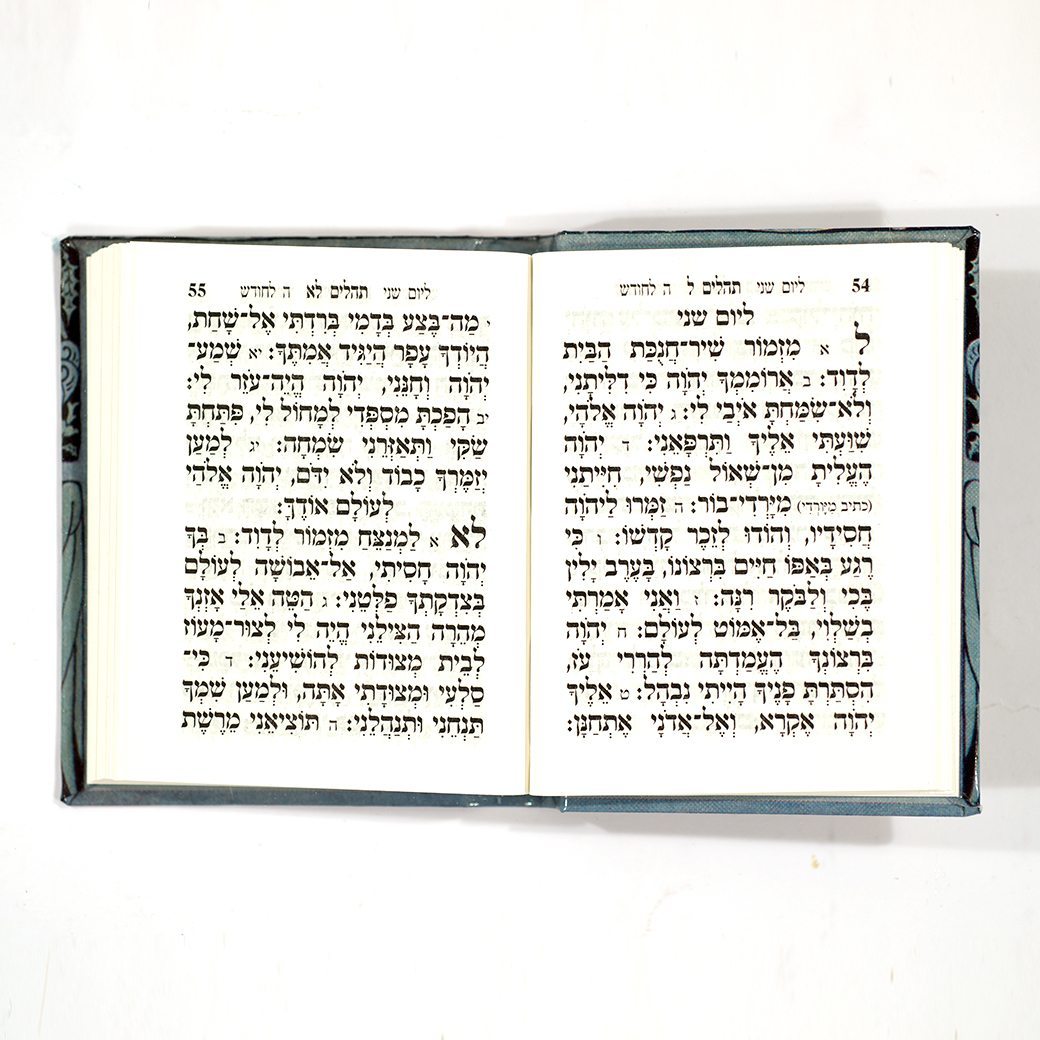 54 ליום שני תהלים ל ה לחודש
ליום שני
ל א מִזְמוֹר שִׁיר־חֲנֻכַּת הַבַּיִת
לְדָוִד: ב אֲרוֹמִמְךָ יְהֹוָה כִּי דִלִּיתָנִי,
וְלֹא־שִׂמַּחְתָּ אֹיְבַי לִי: ג יְהֹוָה אֱלֹהָי,
שִׁוַּעְתִּי אֵלֶיךָ וַתִּרְפָּאֵנִי: ד יְהֹוָה
הֶעֱלִיתָ מִן־שְׁאוֹל נַפְשִׁי, חִיִּיתַנִי
(כתיב מיורדי) מִיָּרְדִי־בוֹר: ה זַמְּרוּ לַיהֹוָה
חֲסִידָיו, וְהוֹדוּ לְזֵכֶר קָדְשׁוֹ: ו כִּי
רֶגַע בְּאַפּוֹ חַיִּים בִּרְצוֹנוֹ, בָּעֶרֶב יָלִין
בֶּכִי וְלַבֹּקֶר רִנָּה: ז וַאֲנִי אָמַרְתִּי
בְשַׁלְוִי, בַּל־אֶמּוֹט לְעוֹלָם: ח יְהֹוָה
בִּרְצוֹנְךָ הֶעֱמַדְתָּה לְהַרְרִי עֹז,
הִסְתַּרְתָּ פָנֶיךָ הָיִיתִי נִבְהָל: ט אֵלֶיךָ
יְהֹוָה אֶקְרָא, וְאֶל־אֲדֹנָי אֶתְחַנָּן:
ליום שני תהלים לא ה לחודש 55
י מַה־בֶּצַע בְּדָמִי בְּרִדְתִּי אֶל־שָׁחַת,
הֲיוֹדְךָ עָפָר הֲיַגִּיד אֲמִתֶּךָ: יא שְׁמַע־
יְהֹוָה וְחָנֵּנִי, יְהֹוָה הֱיֵה־עֹזֵר לִי:
יב הָפַכְתָּ מִסְפְּדִי לְמָחוֹל לִי, פִּתַּחְתָּ
שַׂקִּי וַתְּאַזְּרֵנִי שִׂמְחָה: יג לְמַעַן
יְזַמֶּרְךָ כָבוֹד וְלֹא יִדֹּם, יְהֹוָה אֱלֹהַי
לְעוֹלָם אוֹדֶךָּ:
לא א לַמְנַצֵּחַ מִזְמוֹר לְדָוִד: ב בְּךָ
יְהֹוָה חָסִיתִי, אַל־אֵבוֹשָׁה לְעוֹלָם
בְּצִדְקָתְךָ פַלְּטֵנִי: ג הַטֵּה אֵלַי אָזְנְךָ
מְהֵרָה הַצִּילֵנִי הֱיֵה לִי לְצוּר־מָעוֹז
לְבֵית מְצוּדוֹת לְהוֹשִׁיעֵנִי: ד כִּי־
סַלְעִי וּמְצוּדָתִי אָתָּה, וּלְמַעַן שִׁמְךָ
תַּנְחֵנִי וּתְנַהֲלֵנִי: ה תּוֹצִיאֵנִי מֵרֶשֶׁת